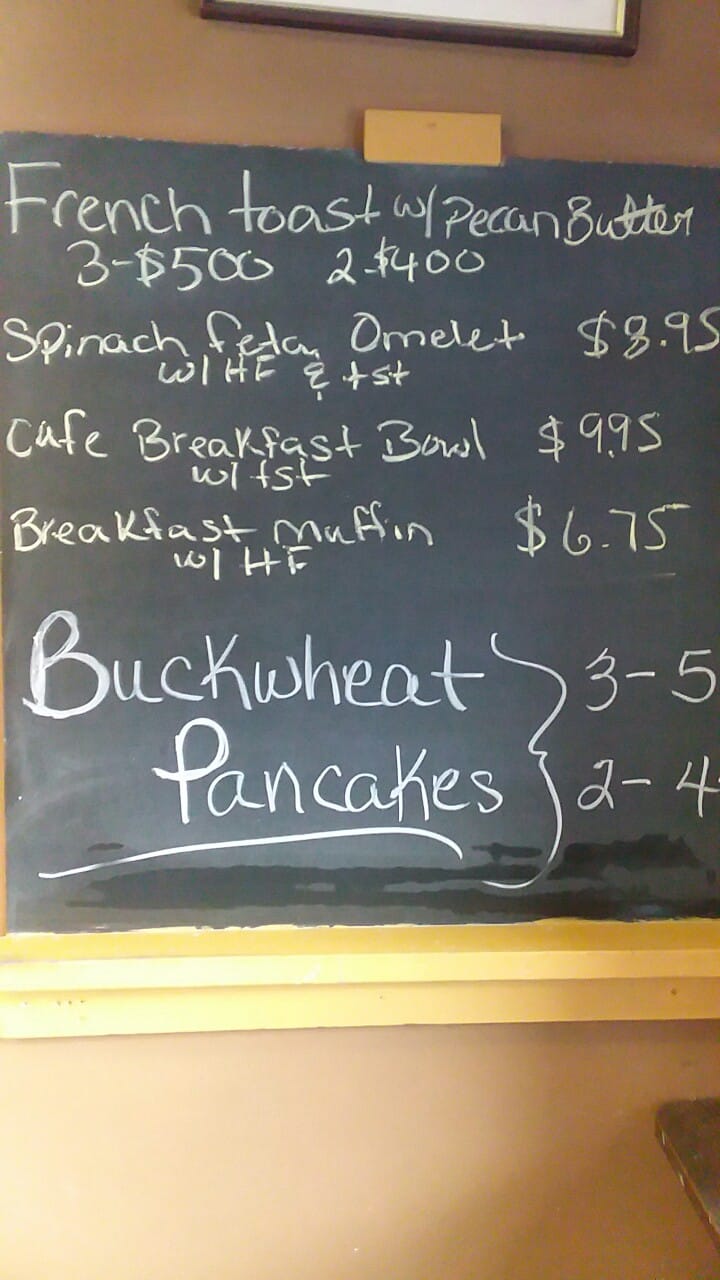 French toast w/ Pecan Butter
3-$500 2-$400
Spinach feta Omelet $8.95
w/ HF & tst
Cafe Breakfast Bowl $9.95
w/ tst
Breakfast Muffin $6.75
w/ HF
Buckwheat } 3-5
Pancakes 2-4